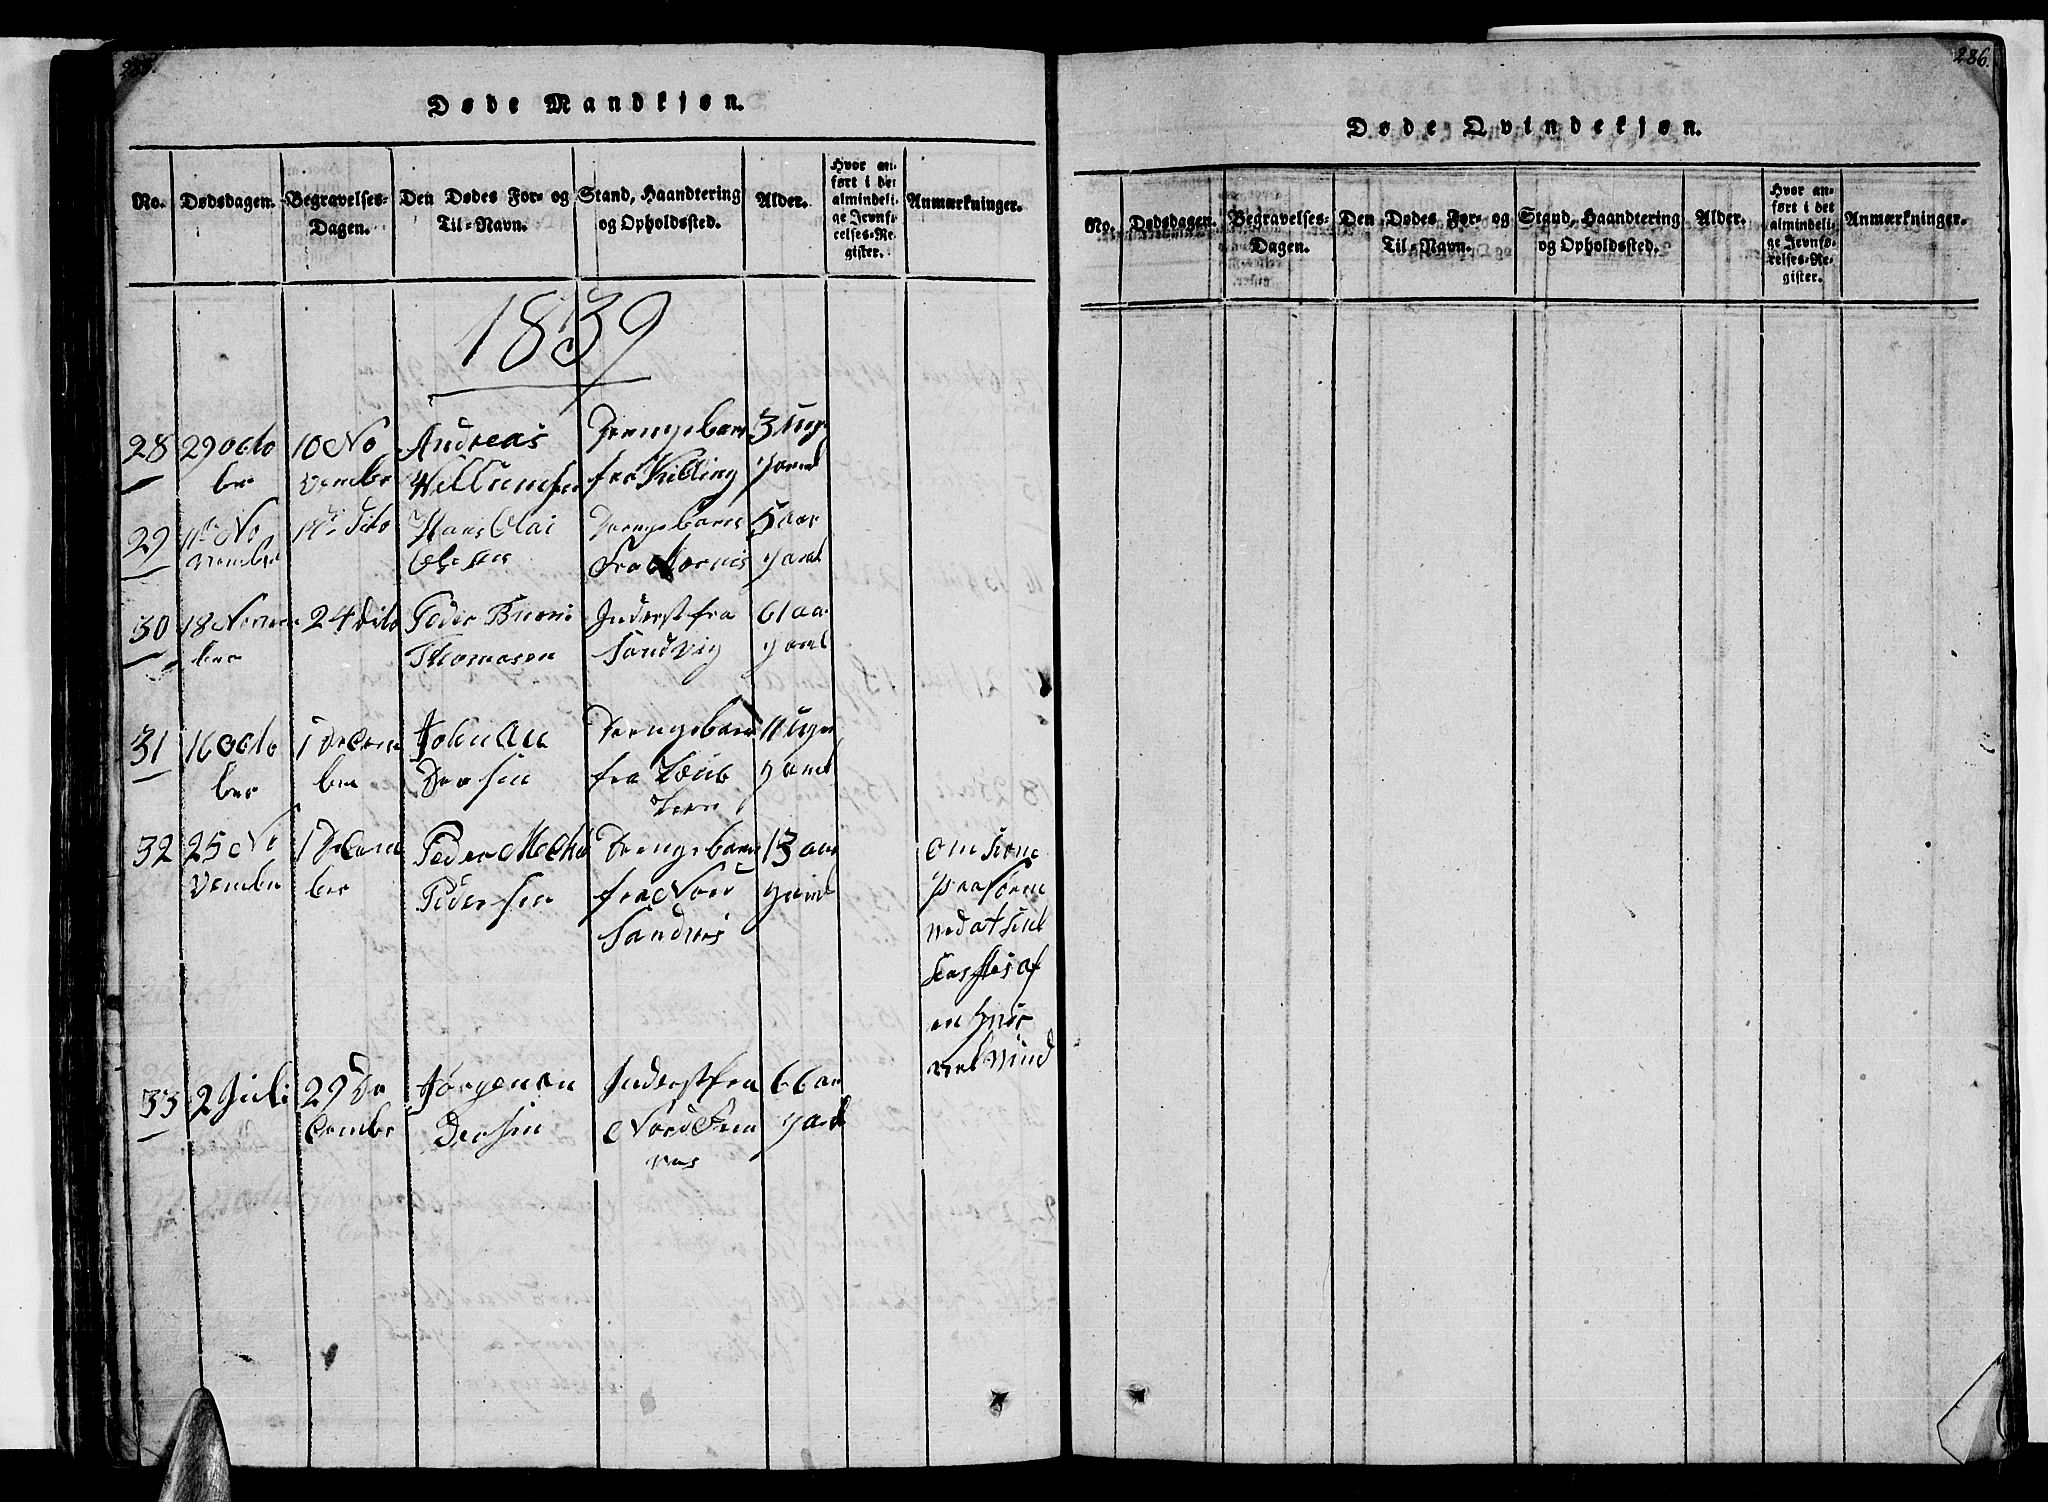 285.
Døde Mandkjøn.
No.
Dødsdagen.
Begravelses-
Dagen.
Den Dødes For- og
Til-Navn.
Stand, Haandtering
og Opholdssted.
Alder.
Hvor an-
ført i det
almindeli-
ge Jevnfø-
relses-Re-
gister.
Anmærkninger.
1839
28
29 octo
ber
10 No
vember
Andreas
Willumsen
Drengebarn
fra Kilding
3 Uger
gaml
29
11te No
vember
17de dito
Hans Olai
Olsen
Drengebarn
fra
5 aar
gaml
30
18 Novem
ber
24 dito
Peder
Thomasen
Inderst fra
Sandvig
61 aar
gaml
31
16 octo
ber
1 Decem
ber
Johan An
Dersen
Drengebarn
fra
11 Uger
gaml
32
25 No
vember
1 Decem
ber
Peder
Pedersen
Drengebarn
fra Nord
Sandnes
13 aar
gaml
om
ved at
af
en
vel Vind
33
2 Juli
29 De
cember
Jørgen An
Dersen
Inderst fra
Nord
nes
66 aar
gaml
286.
Døde Qvindekjøn.
No.
Dødsdagen.
Begravelses-
Dagen.
Den Dødes For- og
Til-Navn.
Stand, Haandtering
og Opholdssted.
Alder.
Hvor an-
ført i det
almindeli-
ge Jevnfø-
relses-Re-
gister.
Anmærkninger.